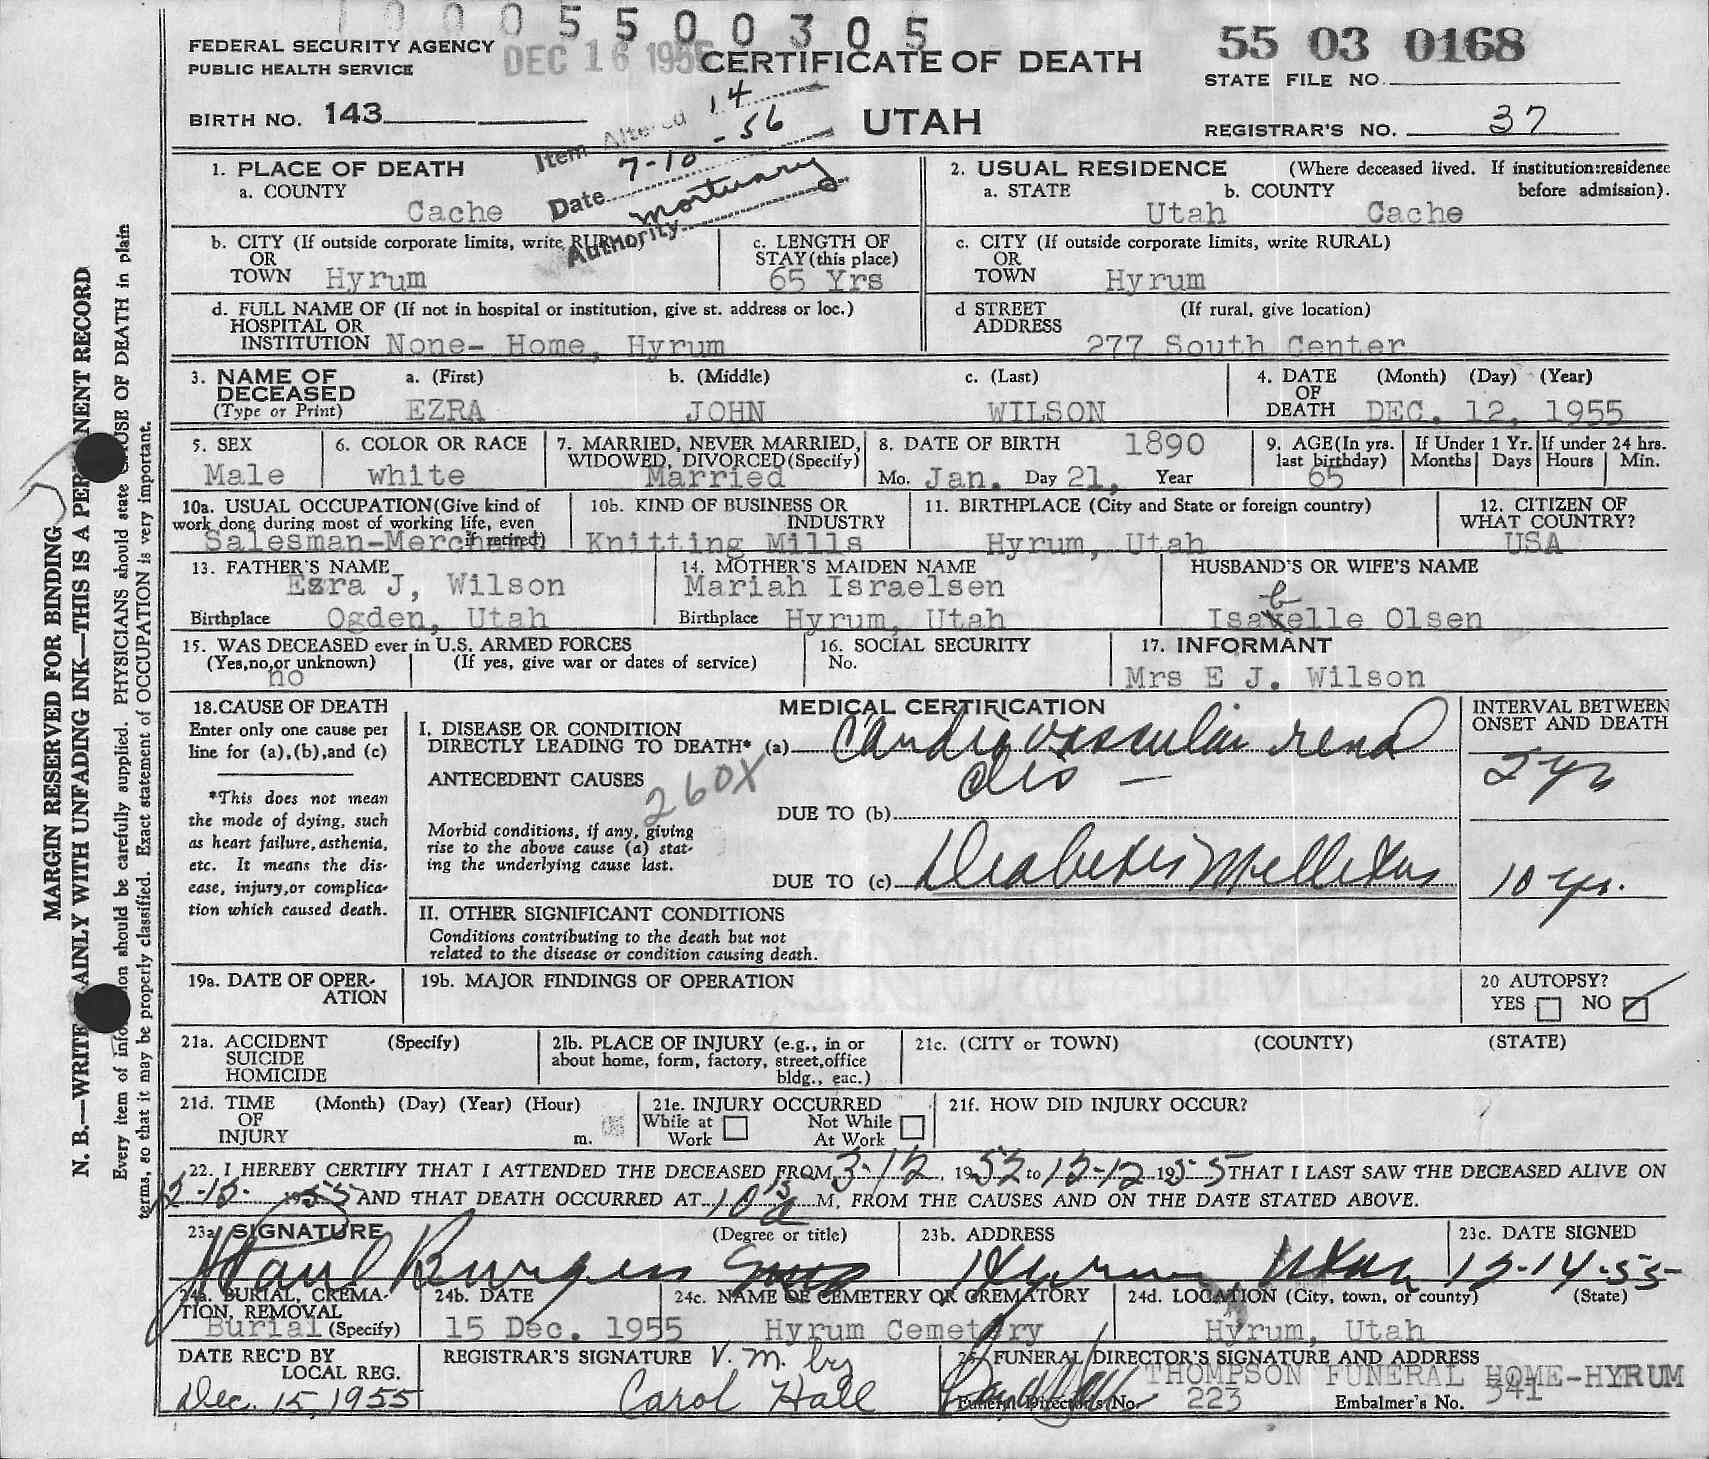 1 0 0 0 5 5 0 0 3 0 5
FEDERAL SECURITY AGENCY
PUBLIC HEALTH SERVICE
DEC 16 1955
CERTIFICATE OF DEATH
55 03 0168
STATE FILE NO.
BIRTH NO. 143
UTAH
REGISTRAR'S NO. 37
Item Altered 14
Date 7-10-56
Authority mortuary
1. PLACE OF DEATH
a. COUNTY
Cache
2. USUAL RESIDENCE (Where deceased lived. If institution:residence
a. STATE b. COUNTY before admission).
Utah Cache
b. CITY (If outside corporate limits, write RUR
OR
TOWN Hyrum
c. LENGTH OF
STAY(this place)
65 Yrs
c. CITY (If outside corporate limits, write RURAL)
OR
TOWN Hyrum
d. FULL NAME OF (If not in hospital or institution, give st. address or loc.)
HOSPITAL OR
INSTITUTION None- Home, Hyrum
d STREET (If rural, give location)
ADDRESS
277 South Center
3. NAME OF a. (First) b. (Middle) c. (Last)
DECEASED
(Type or Print) EZRA JOHN WILSON
4. DATE (Month) (Day) (Year)
OF
DEATH DEC. 12, 1955
5. SEX
Male
6. COLOR OR RACE
white
7. MARRIED, NEVER MARRIED,
WIDOWED, DIVORCED(Specify)
Married
8. DATE OF BIRTH 1890
Mo. Jan. Day 21, Year
9. AGE(In yrs.
last birthday)
65
If Under 1 Yr.
Months Days
If under 24 hrs.
Hours Min.
10a. USUAL OCCUPATION(Give kind of
work done during most of working life, even
if retired)
Salesman-Merchant
10b. KIND OF BUSINESS OR
INDUSTRY
Knitting Mills
11. BIRTHPLACE (City and State or foreign country)
Hyrum, Utah
12. CITIZEN OF
WHAT COUNTRY?
USA
13. FATHER'S NAME
Ezra J, Wilson
Birthplace Ogden, Utah
14. MOTHER'S MAIDEN NAME
Mariah Israelsen
Birthplace Hyrum, Utah
HUSBAND'S OR WIFE'S NAME
b
Isabelle Olsen
15. WAS DECEASED ever in U.S. ARMED FORCES
(Yes,no,or unknown) (If yes, give war or dates of service)
no
16. SOCIAL SECURITY
No.
17. INFORMANT
Mrs E J. Wilson
18.CAUSE OF DEATH
Enter only one cause per
line for (a),(b),and (c)
*This does not mean
the mode of dying, such
as heart failure, asthenia,
etc. It means the dis-
ease, injury,or complica-
tion which caused death.
MEDICAL CERTIFICATION
I. DISEASE OR CONDITION
DIRECTLY LEADING TO DEATH* (a) Cardiovascular renal
dis —
ANTECEDENT CAUSES
260X
DUE TO (b)
Morbid conditions, if any, giving
rise to the above cause (a) stat-
ing the underlying cause last.
DUE TO (c) Diabetes Mellitus
INTERVAL BETWEEN
ONSET AND DEATH
2 yrs
10 yrs.
II. OTHER SIGNIFICANT CONDITIONS
Conditions contributing to the death but not
related to the disease or condition causing death.
19a. DATE OF OPER-
ATION
19b. MAJOR FINDINGS OF OPERATION
20 AUTOPSY?
YES NO
21a. ACCIDENT (Specify)
SUICIDE
HOMICIDE
21b. PLACE OF INJURY (e.g., in or
about home, form, factory, street,office
bldg., eac.)
21c. (CITY or TOWN) (COUNTY) (STATE)
21d. TIME (Month) (Day) (Year) (Hour)
OF
INJURY m.
21e. INJURY OCCURRED
While at Not While
Work At Work
21f. HOW DID INJURY OCCUR?
22. I HEREBY CERTIFY THAT I ATTENDED THE DECEASED FROM 3-12, 1952 to 12-12 1955 THAT I LAST SAW THE DECEASED ALIVE ON
1955 AND THAT DEATH OCCURRED AT 10 a M, FROM THE CAUSES AND ON THE DATE STATED ABOVE.
23a SIGNATURE (Degree or title)
Paul Burgess
23b. ADDRESS
Hyrum, Utah
23c. DATE SIGNED
12-14-55
24a. BURIAL, CREMA-
TION, REMOVAL
Burial (Specify)
24b. DATE
15 Dec. 1955
24c. NAME OF CEMETERY OR CREMATORY
Hyrum Cemetery
24d. LOCATION (City, town, or county) (State)
Hyrum, Utah
DATE REC'D BY
LOCAL REG.
Dec. 15, 1955
REGISTRAR'S SIGNATURE V. M. by
Carol Hall
25. FUNERAL DIRECTOR'S SIGNATURE AND ADDRESS
THOMPSON FUNERAL HOME-HYRUM
Funeral Director's No. 223 Embalmer's No. 341
MARGIN RESERVED FOR BINDING
N. B.—WRITE AINLY WITH UNFADING INK—THIS IS A PER NENT RECORD
Every item of info on should be carefully supplied. PHYSICIANS should state C USE OF DEATH in plain
terms, so that it may be properly classified. Exact statement of OCCUPATION is very important.